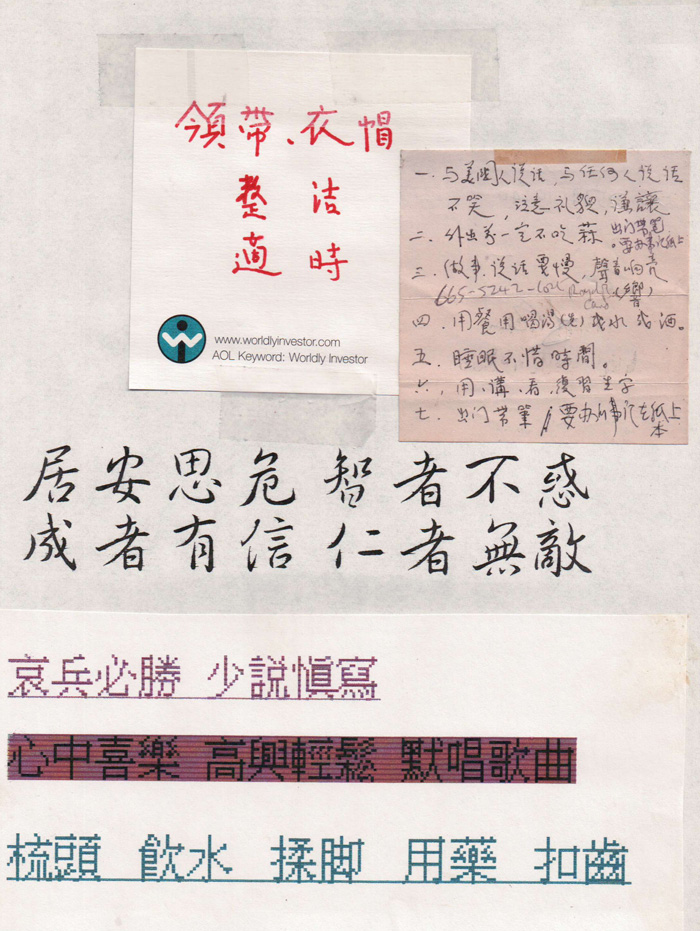 領帶、衣帽
整洁
適時
www.worldlyinvestor.com
AOL Keyword: Worldly Investor
一. 与美国人说话, 与任何人说话
不笑, 注意礼貌, 谦讓
二. 外出前一定不吃蒜 出门带笔
要办事记纸上
三. 做事、说话要慢, 聲音响亮
(響)
665-5242-
四. 用餐用喝湯(先)或水或酒。
五. 睡眠不惜時間。
六, 用、講、看、復習生字
七. 出门带筆, 要办的事记在紙上
本
居安思危 智者不惑
成者有信 仁者無敵
哀兵必勝 少説慎寫
心中喜樂 高興輕鬆 默唱歌曲
梳頭 飲水 揉脚 用藥 扣齒